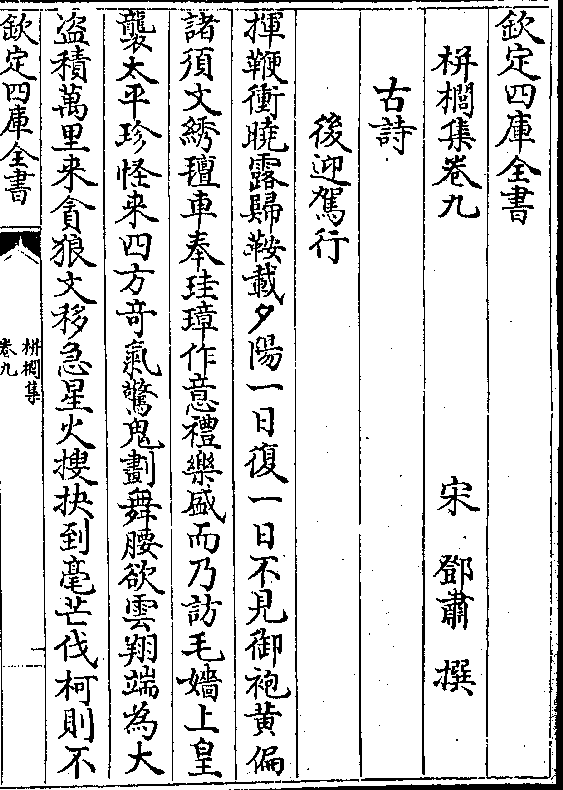 欽定四庫全書
栟櫚集卷九
宋 鄧肅 撰
古詩
後迎駕行
揮鞭衝曉露歸鞍載夕陽一日復一日不見御袍黄偏
諸須文綉䡀車奉珪璋作意禮樂盛而乃訪毛嬙上皇
襲太平珍怪来四方竒氣驚鬼劃舞腰欲雲翔端為大
盗積萬里来貪狼文移急星火搜抉到毫芒伐柯則不
欽定四庫全書
栟櫚集
卷九
一